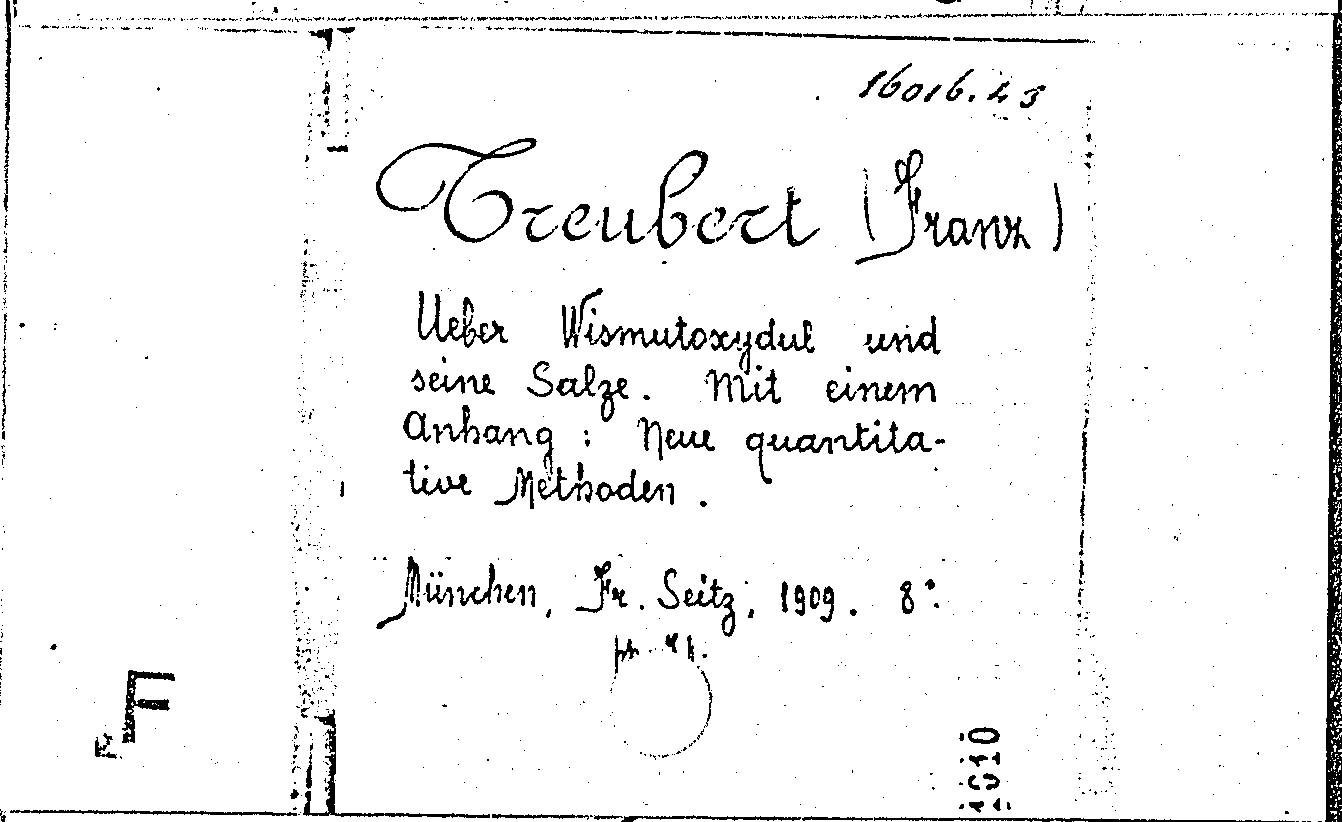 16016.43
Treubert (Franz)
Ueber Wismutoxydul und
seine Salze. Mit einem
Anhang : Neue quantita-
tive Methoden.
München, Fr. Seitz, 1909. 8°.
F
1910